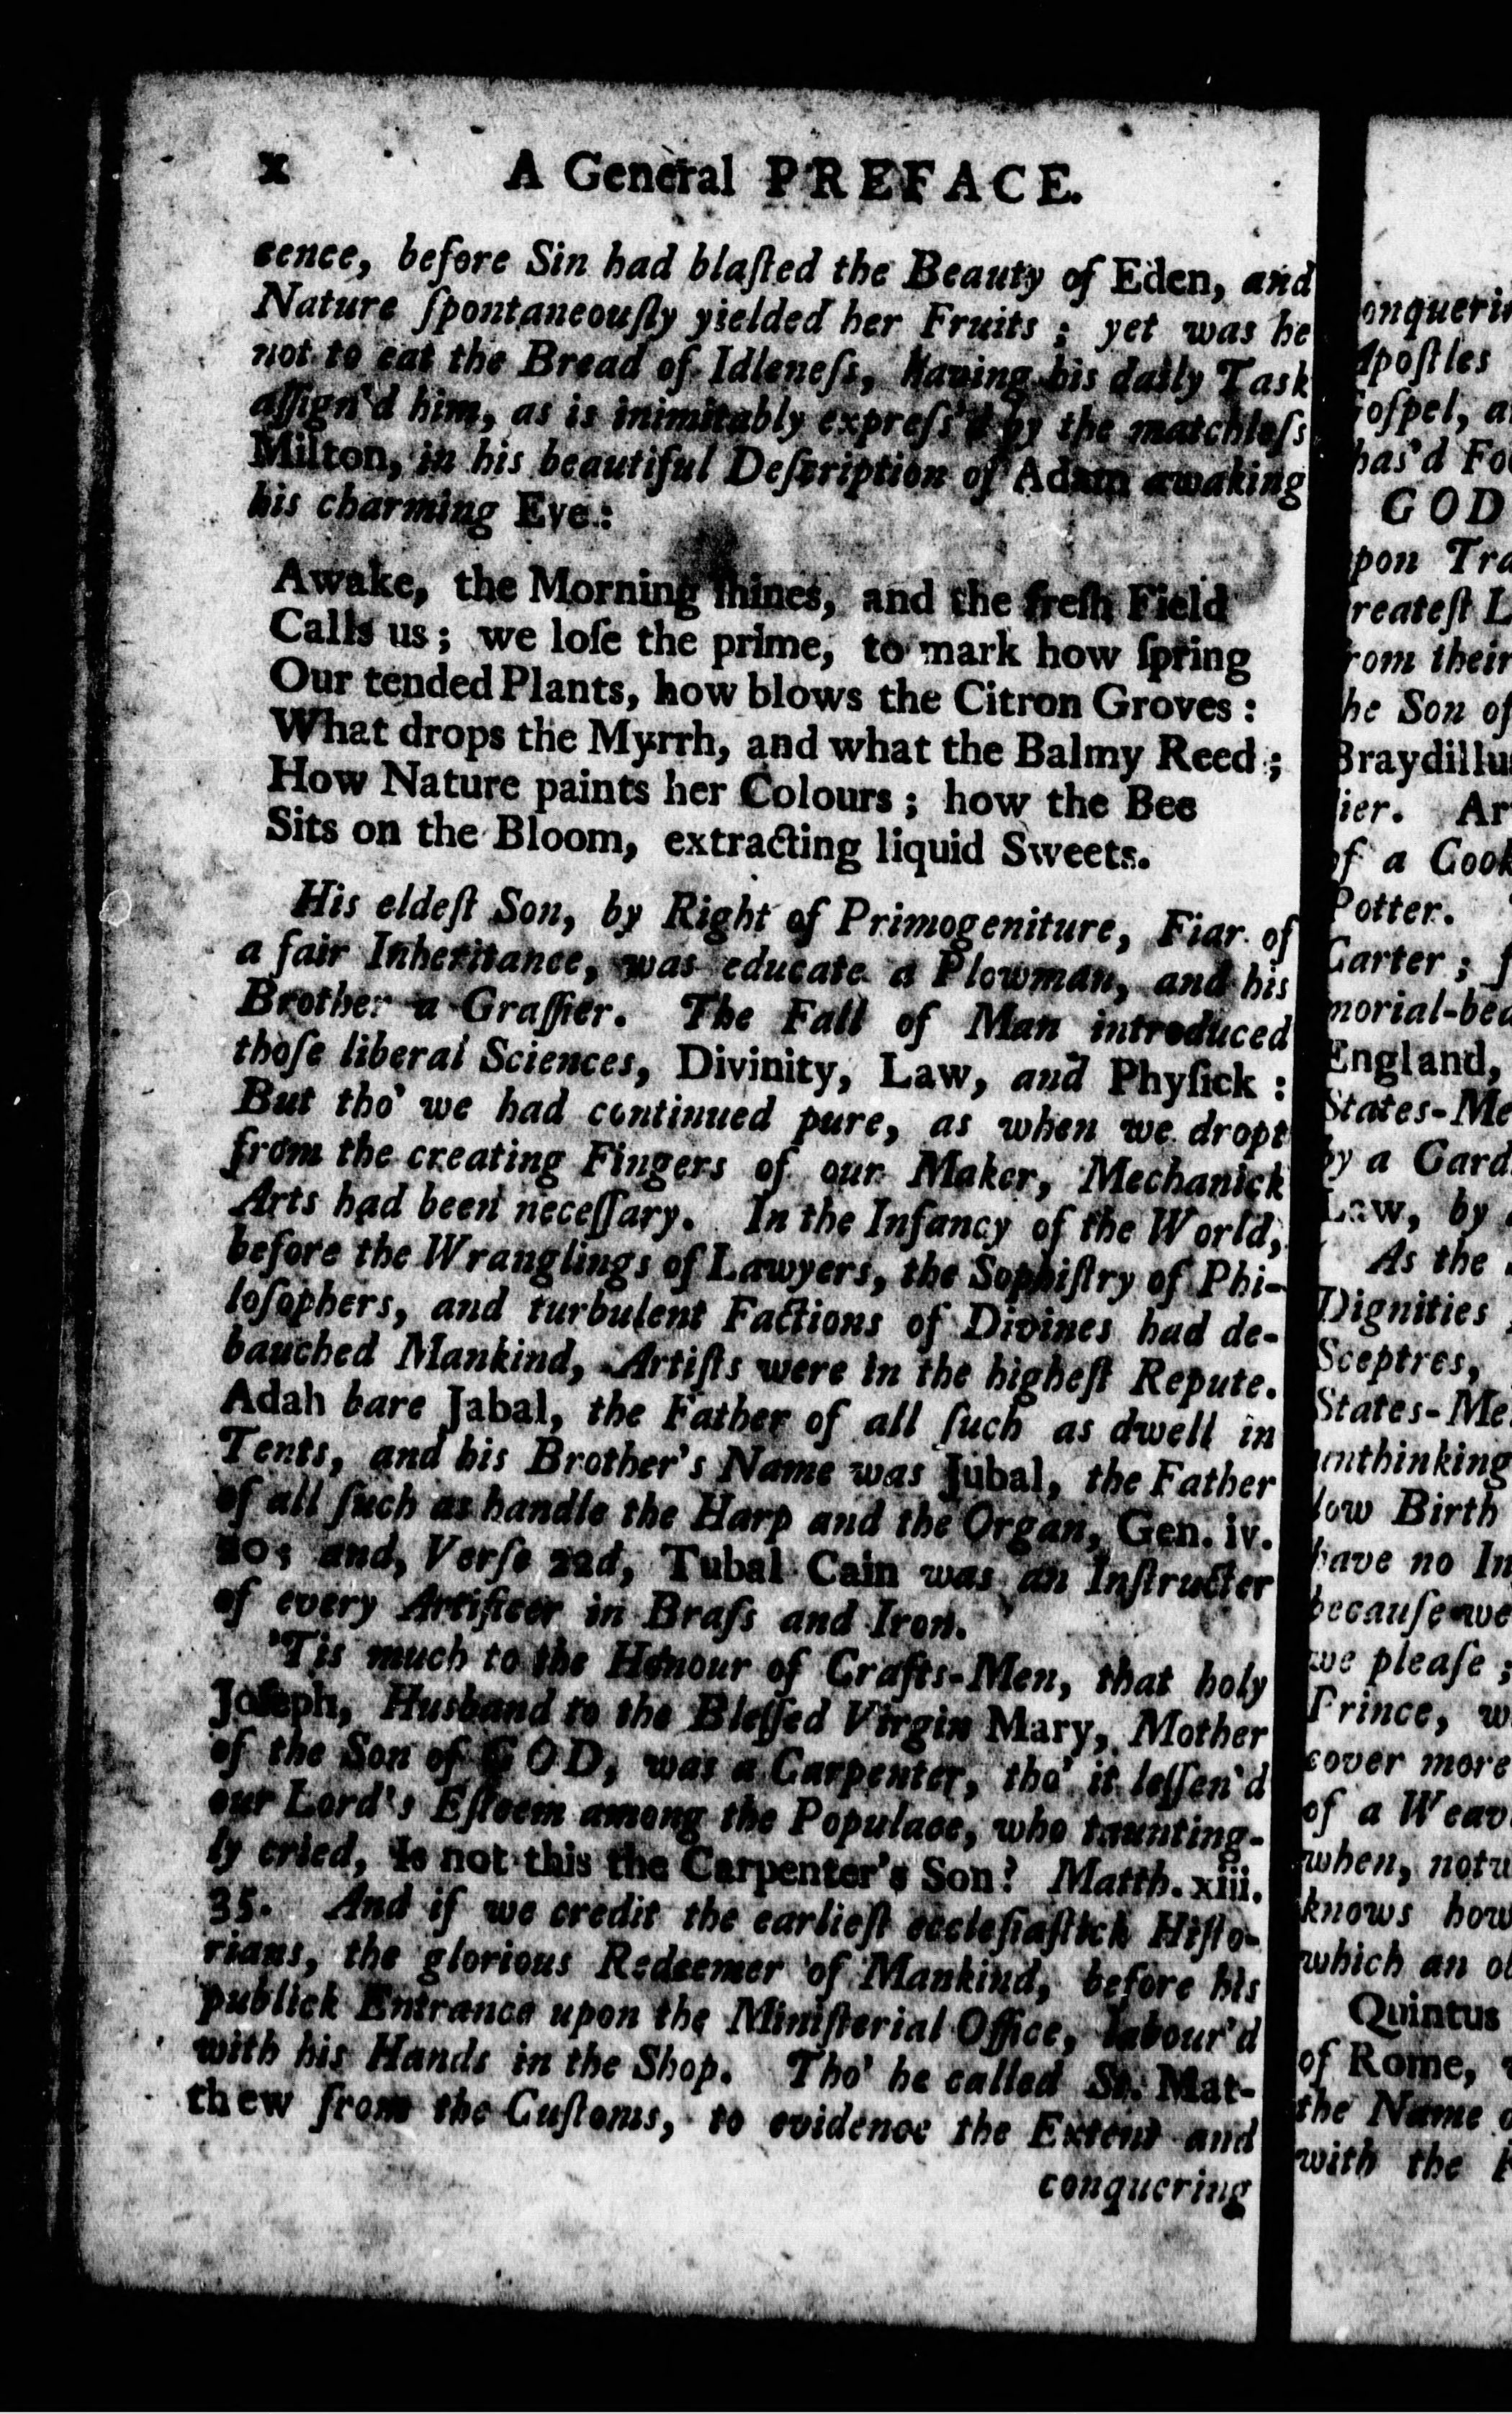 x A General PREFACE.
cence, before Sin had blaſted the Beauty of Eden, and
Nature ſpontaneouſly yielded her Fruits ; yet was he
not to eat the Bread of Idleneſs, having his daily Task
aſſign'd him, as is inimitably expreſs'd by the matchleſs
Milton, in his beautiful Deſcription of Adam awaking
his charming Eve :
Awake, the Morning ſhines, and the freſh Field
Calls us ; we loſe the prime, to mark how ſpring
Our tended Plants, how blows the Citron Groves :
What drops the Myrrh, and what the Balmy Reed ;
How Nature paints her Colours ; how the Bee
Sits on the Bloom, extracting liquid Sweets.
His eldeſt Son, by Right of Primogeniture, Fiar of
a fair Inheritance, was educate a Plowman, and his
Brother a Graſſier. The Fall of Man introduced
thoſe liberal Sciences, Divinity, Law, and Phyſick :
But tho' we had continued pure, as when we dropt
from the creating Fingers of our Maker, Mechanick
Arts had been neceſſary. In the Infancy of the World,
before the Wranglings of Lawyers, the Sophiſtry of Phi-
loſophers, and turbulent Factions of Divines had de-
bauched Mankind, Artiſts were in the higheſt Repute.
Adah bare Jabal, the Father of all ſuch as dwell in
Tents, and his Brother's Name was Jubal, the Father
of all ſuch as handle the Harp and the Organ, Gen. iv.
20; and, Verſe 22d, Tubal Cain was an Inſtructer
of every Artificer in Braſs and Iron.
'Tis much to the Honour of Crafts-Men, that holy
Joſeph, Husband to the Bleſſed Virgin Mary, Mother
of the Son of GOD, was a Carpenter, tho' it leſſen'd
our Lord's Eſteem among the Populace, who taunting-
ly cried, Is not this the Carpenter's Son? Matth. xiii.
35. And if we credit the earlieſt eccleſiaſtick Hiſto-
rians, the glorious Redeemer of Mankind, before his
publick Entrance upon the Miniſterial Office, labour'd
with his Hands in the Shop. Tho' he called St. Mat-
thew from the Cuſtoms, to evidence the Extent and
conquering
onquerin
Apoſtles
oſpel, a
has'd Fo
GOD
pon Tra
reateſt L
rom their
he Son of
Braydillu
lier. Ar
of a Cook
Potter.
Garter ; ſ
morial-bea
England,
States-Me
by a Gard
Law, by
As the
Dignities
Sceptres,
States-Me
unthinking
low Birth
have no In
becauſe we
we pleaſe ;
Prince, w
cover more
of a Weav
when, notw
knows how
which an ob
Quintus
of Rome,
the Name
with the